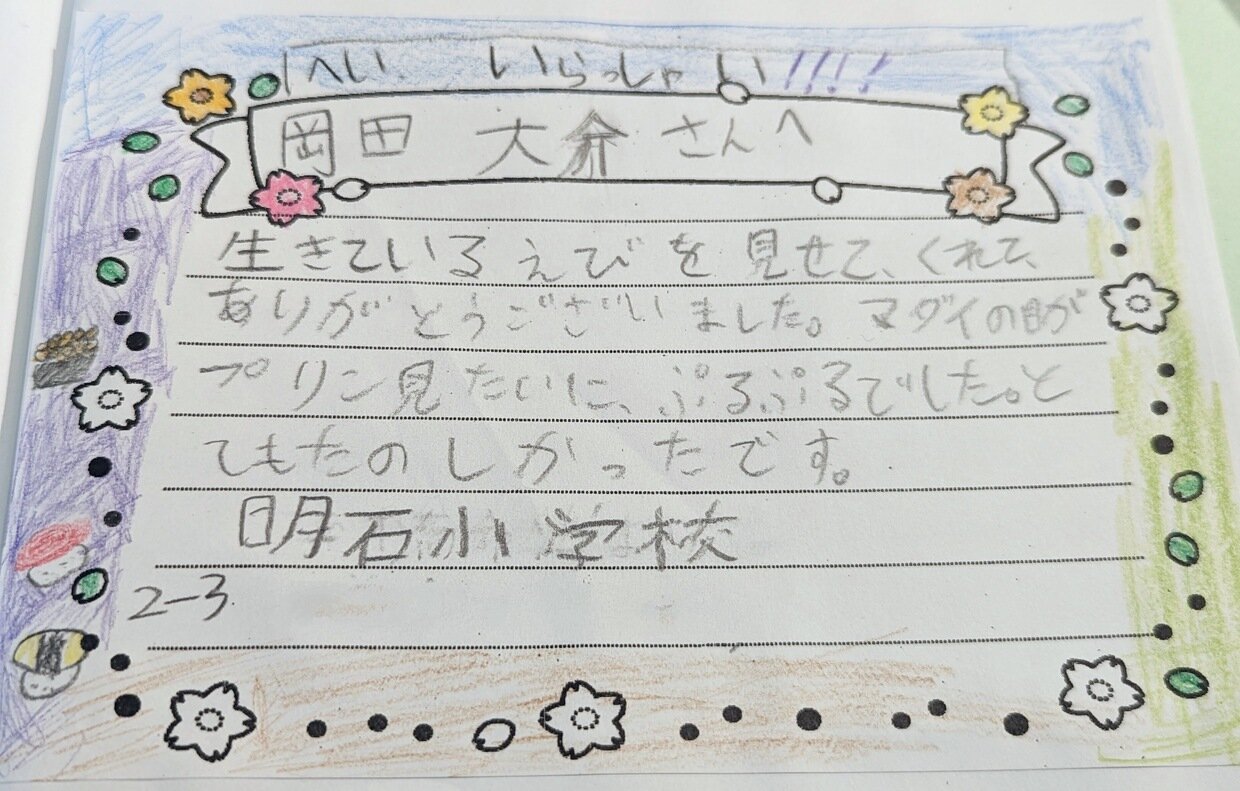 へい いらっしゃい!!!!
岡田 大介さんへ
生きているえびを見せて、くれて、
ありがとうございました。マダイの目が
プリン見たいに、ぷるぷるでした。と
てもたのしかったです。
明石小学校
2-3